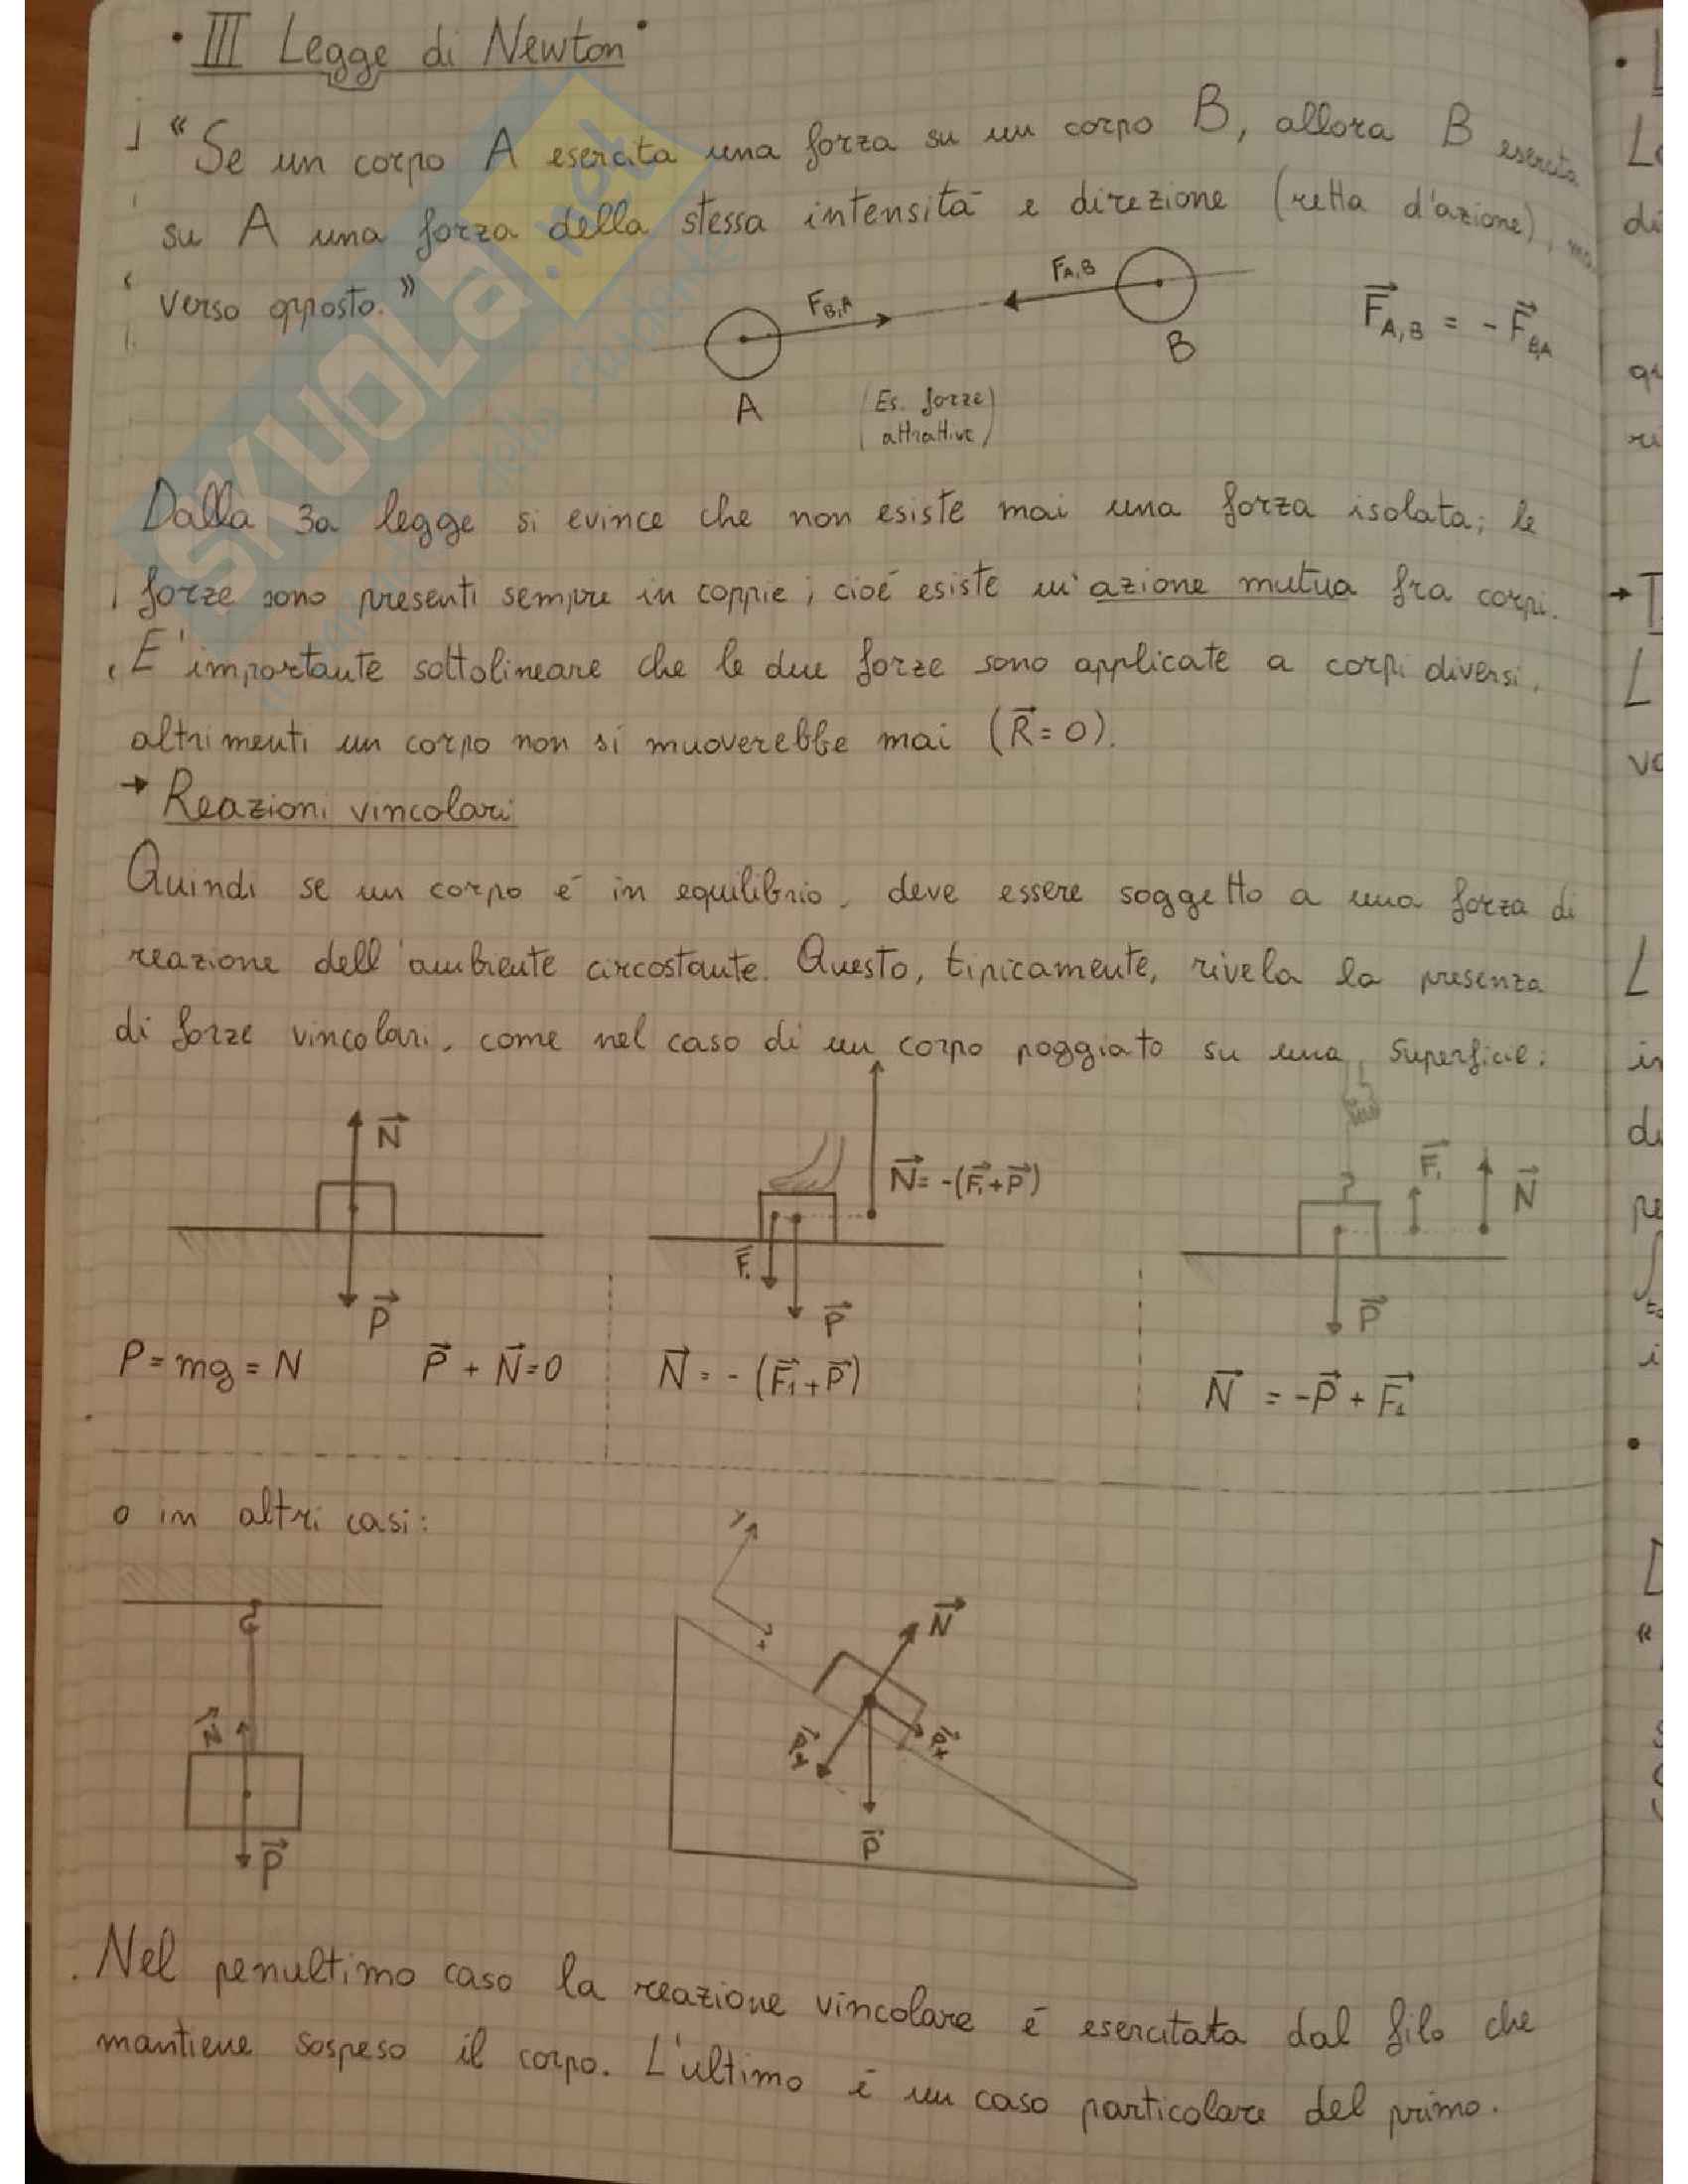 • III Legge di Newton •
"Se un corpo A esercita una forza su un corpo B, allora B esercita
su A una forza della stessa intensitā e direzione (retta d'azione), ma
verso opposto."
F_B,A
F_A,B
A
B
F⃗_A,B = - F⃗_B,A
(Es. forze
attrattive)
Dalla 3a legge si evince che non esiste mai una forza isolata; le
forze sono presenti sempre in coppie; cioē esiste un'azione mutua fra corpi.
E' importante sottolineare che le due forze sono applicate a corpi diversi,
altrimenti un corpo non si muoverebbe mai (R⃗ = 0).
→ Reazioni vincolari
Quindi se un corpo ē in equilibrio, deve essere soggetto a una forza di
reazione dell'ambiente circostante. Questo, tipicamente, rivela la presenza
di forze vincolari, come nel caso di un corpo poggiato su una superficie:
N⃗
P⃗
N⃗ = -(F⃗₁+P⃗)
F⃗₁
P⃗
F⃗₁
N⃗
P⃗
P = mg = N
P⃗ + N⃗ = 0
N⃗ = - (F⃗₁+P⃗)
N⃗ = -P⃗ + F⃗₁
o in altri casi:
y
x
N⃗
P⃗
N⃗
P⃗y
P⃗x
P⃗
Nel penultimo caso la reazione vincolare ē esercitata dal filo che
mantiene sospeso il corpo. L'ultimo ē un caso particolare del primo.
SKUOLA.net